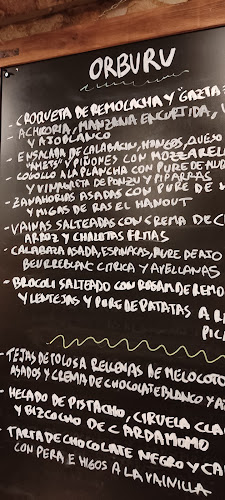 ORBURU
- CROQUETA DE REMOLACHA Y "GAZTA
- ACHICORIA, MANZANA ENCURTIDA,
Y AJOBLANCO
- ENSALADA DE CALABACIN, HONGOS, QUESO
Y PIÑONES CON MOZZARELLA
- COGOLLO A LA PLANCHA CON PURE DE
Y VINAGRETA DE PONZU Y PIPARRAS
- ZANAHORIAS ASADAS CON PURE DE
Y MIGAS DE RAS EL HANOUT
- VAINAS SALTEADAS CON CREMA DE
ARROZ Y CHALOTAS FRITAS
- CALABAZA ASADA, ESPINAKAS, PURE DE AJO
BEURREBLANC CITRICA Y AVELLANAS
- BROCOLI SALTEADO CON ROMAN DE REMO
Y LENTEJAS Y PURE DE PATATAS A
PIC
- TEJAS DE TOLOSA RELLENAS DE MELOCOTO
ASADOS Y CREMA DE CHOCOLATE BLANCO Y
- HELADO DE PISTACHO, CIRUELA CLA
Y BIZCOCHO DE CARDAMOMO
- TARTA DE CHOCOLATE NEGRO Y CA
CON PERA E HIGOS A LA VAINILLA